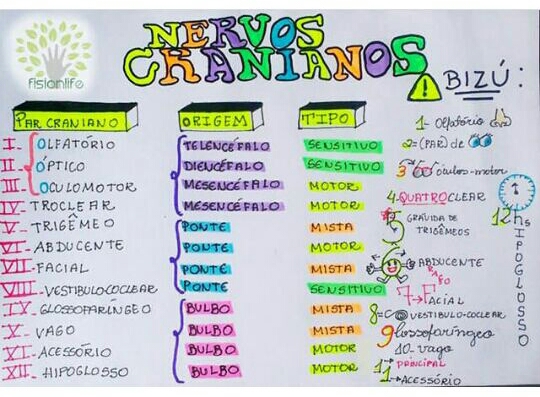 fisianlife
NERVOS
CRANIANOS
BIZÚ:
PAR CRANIANO ORIGEM TIPO
I- OLFATÓRIO TELENCÉFALO SENSITIVO
II- ÓPTICO DIENCÉFALO SENSITIVO
III- OCULOMOTOR MESENCÉFALO MOTOR
IV- TROCLEAR MESENCÉFALO MOTOR
V- TRIGÊMEO PONTE MISTA
VI- ABDUCENTE PONTE MOTOR
VII- FACIAL PONTE MISTA
VIII- VESTIBULOCOCLEAR PONTE SENSITIVO
IX- GLOSSOFARÍNGEO BULBO MISTA
X- VAGO BULBO MISTA
XI- ACESSÓRIO BULBO MOTOR
XII- HIPOGLOSSO BULBO MOTOR
1- Olfatório
2= (PAR) de
3 óculo-motor
4-QUATROCLEAR
5 GRÁVIDA DE
TRIGÊMEOS
6 ABDUCENTE
7→FACIAL
RAFO
8=C VESTIBULO-COCLEAR
9lossofaríngeo
10- vago
11→PRINCIPAL
→ACESSÓRIO
12hs
IPOGLOSSO